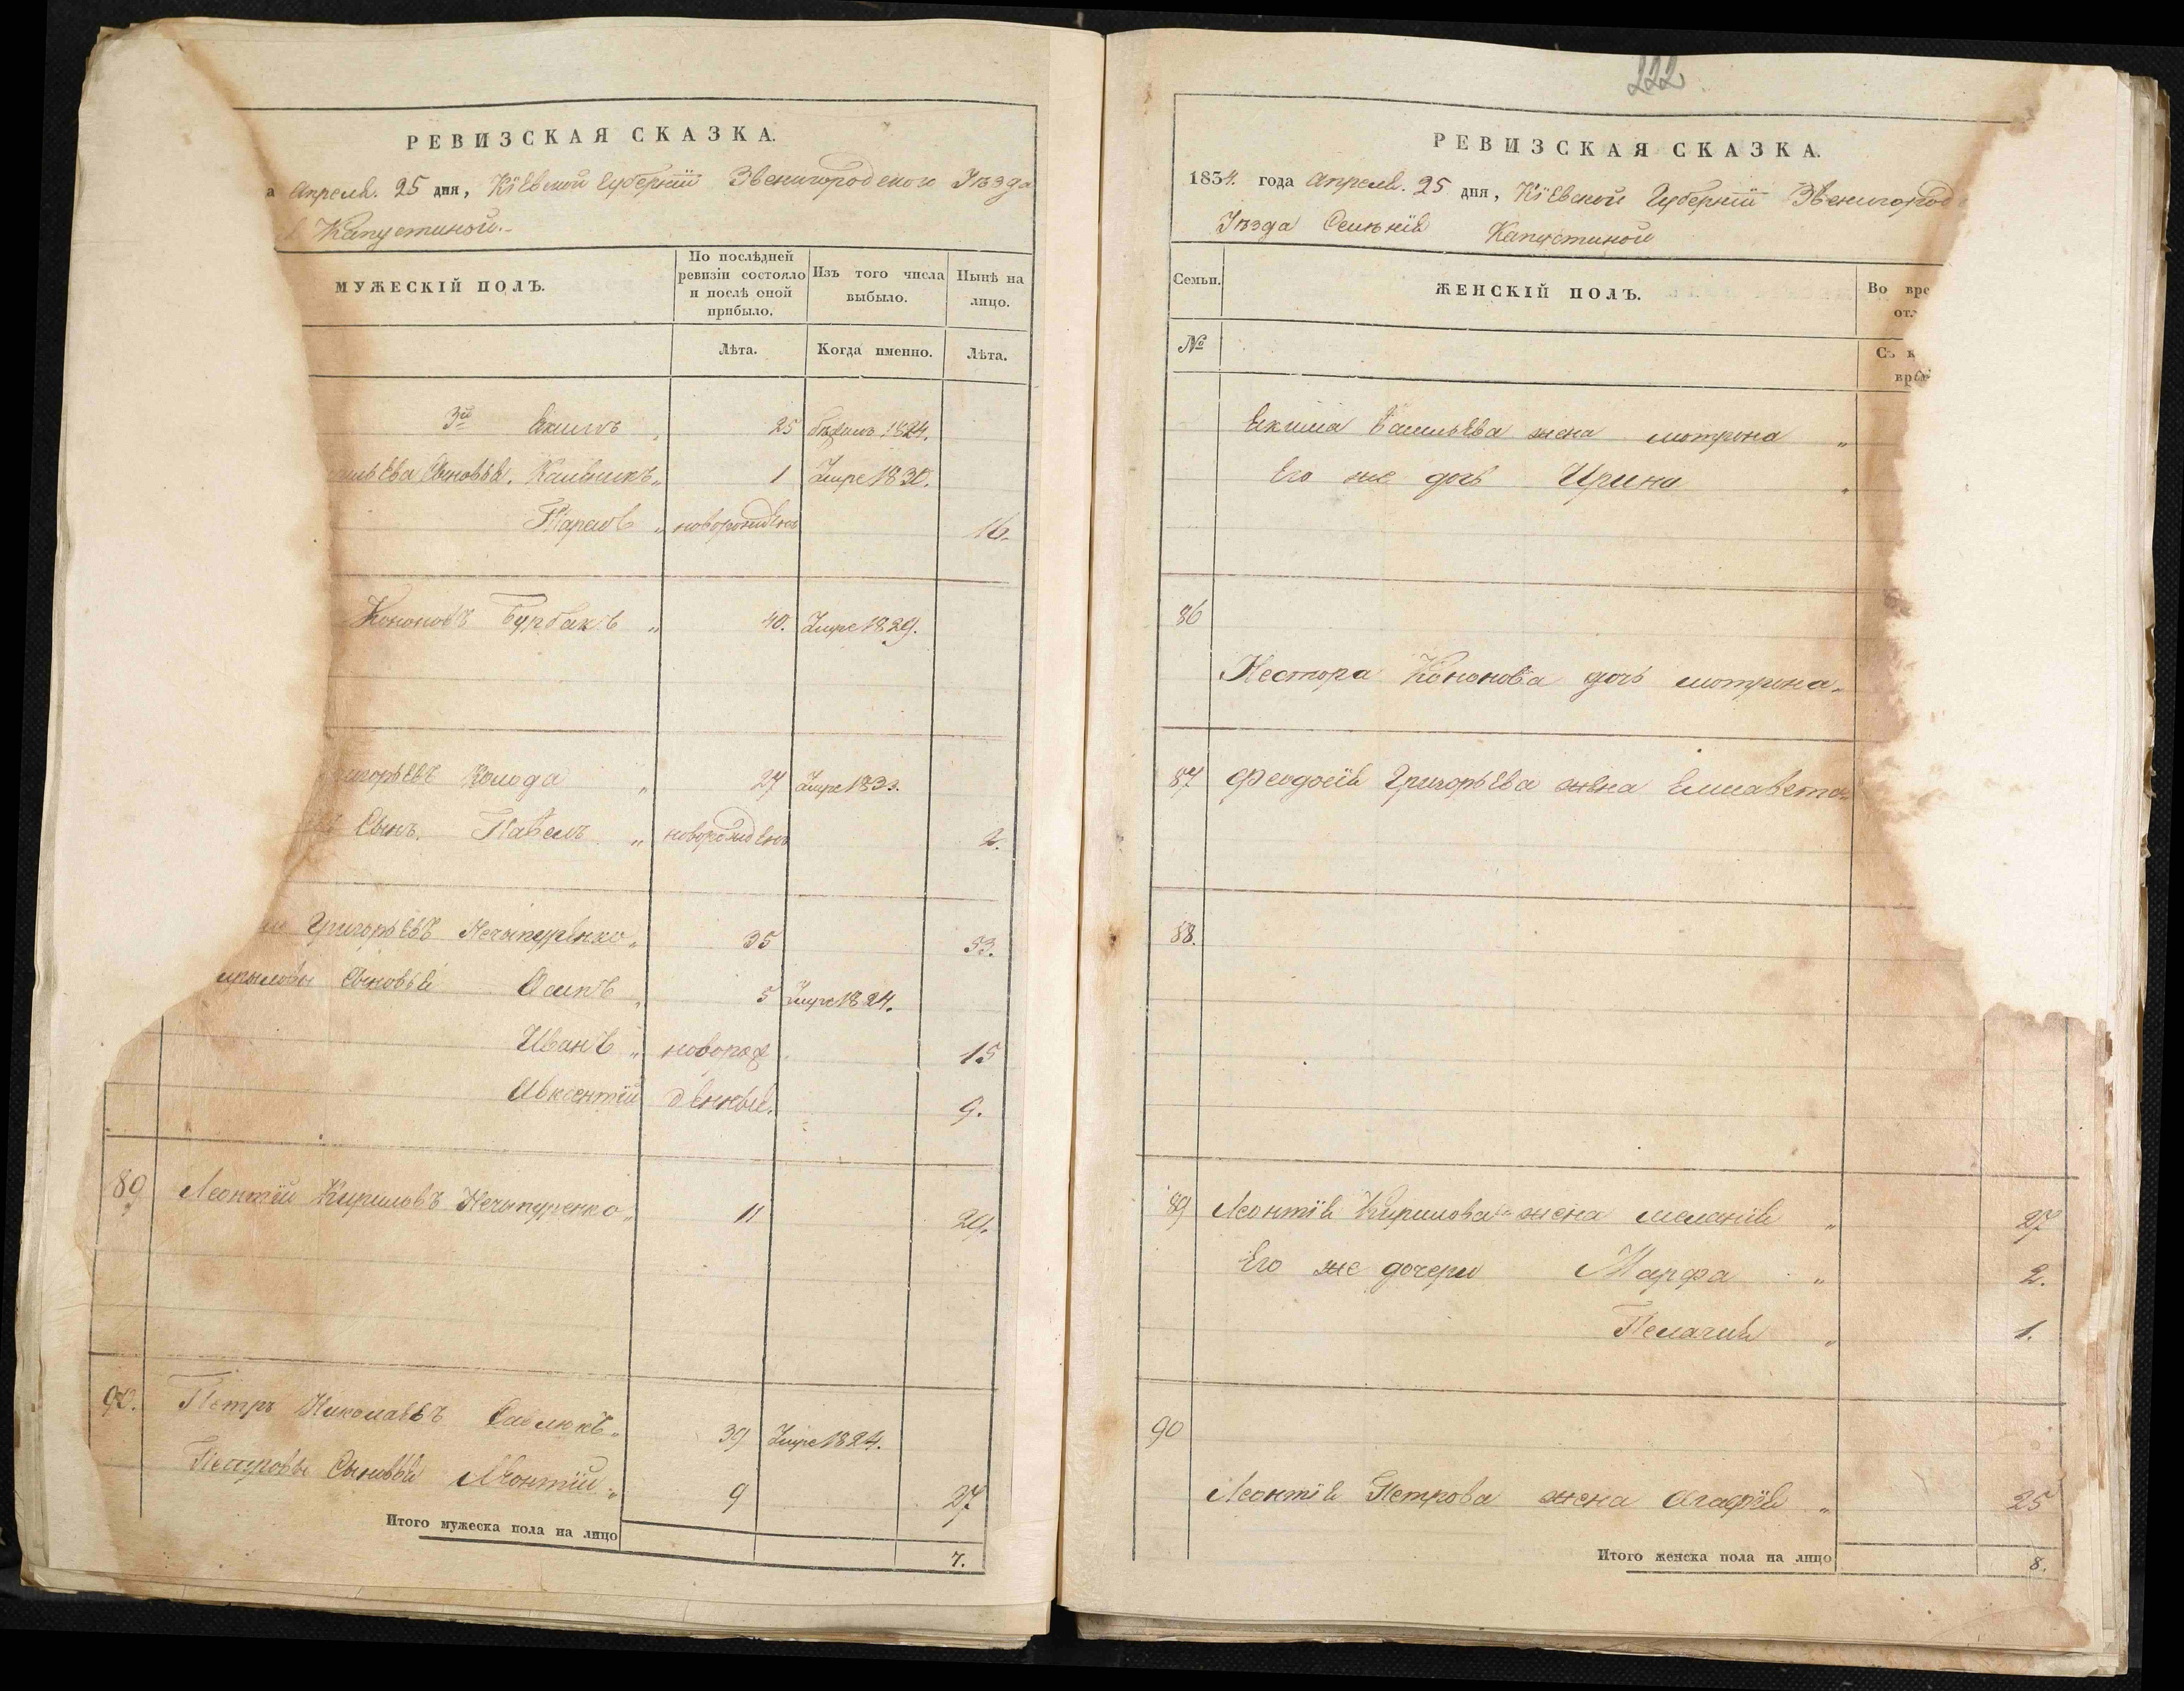 РЕВИЗСКАЯ СКАЗКА.
а Апреля. 25 дня, Кіевской Губерніи Звенигородского Уѣзда
Капустиной.
МУЖЕСКІЙ ПОЛЪ.
По послѣдней ревизіи состояло и послѣ оной прибыло.
Изъ того числа выбыло.
Нынѣ на лицо.
Лѣта.
Когда именно.
Лѣта.
3й Екимъ „ 25 бѣжалъ 1824.
сыновья. Калиникъ „ 1 Умре 1830.
Тарасъ „ новорожденъ 16.
Кононовъ Бурбакъ „ 40. Умре 1829.
Колода „ 27 Умре 1833.
Сынъ. Павелъ „ новорожденъ 2.
Григорьевъ Нечипуренко „ 35 53.
Сыновья Осипъ „ 5 Умре 1824.
Иванъ „ новорож 15
Авксентій денные. 9.
89 Леонтій Кириловъ Нечипуренко „ 11 29.
90. Петръ Николаевъ Савлюкъ „ 39 Умре 1824.
Петровы Сыновья Леонтій „ 9 27
Итого мужеска пола на лицо 7.
222
РЕВИЗСКАЯ СКАЗКА.
1834. года Апреля. 25 дня, Кіевской Губерніи Звенигород
Уѣзда Селенія Капустиной
Семьи.
ЖЕНСКІЙ ПОЛЪ.
Во вре
от
№
Съ к
вре
Екима Васильева жена мотрона „
Его же дочь Ирина „
86
Нестора Кононова дочь мотрина „
87 Феодосія Григорьева жена Елисавета „
88.
89 Леонтія Кирилова жена меланія „ 27
Его же дочери Марфа „ 2.
Пелагия „ 1.
90
Леонтія Петрова жена Агафія „ 25
Итого женска пола на лицо 8.